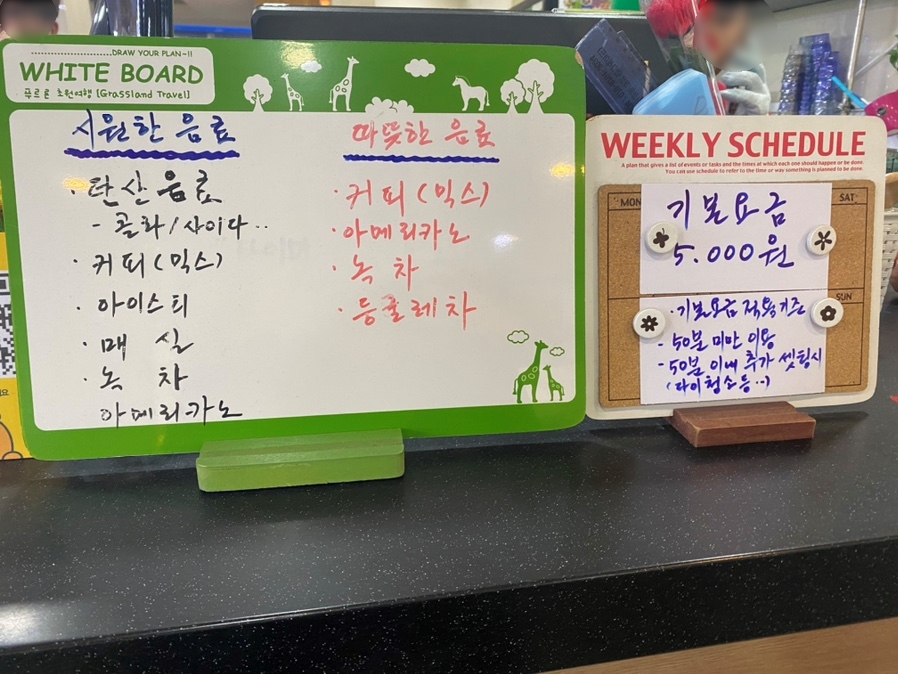 DRAW YOUR PLAN~!!
WHITE BOARD
푸르른 초원여행 [Grassland Travel]
시원한 음료
· 탄산음료
- 콜라/사이다..
· 커피(믹스)
· 아이스티
· 매실
· 녹차
아메리카노
따뜻한 음료
· 커피(믹스)
· 아메리카노
· 녹차
· 둥굴레차
WEEKLY SCHEDULE
A plan that gives a list of events or tasks and the times at which each one should happen or be done.
You can use schedule to refer to the time or way something is planned to be done.
MON
SAT
기본요금
5.000원
SUN
· 기본요금 적용기준
- 50분 미만 이용
- 50분 이내 추가 셋팅시
(다이청소등..)